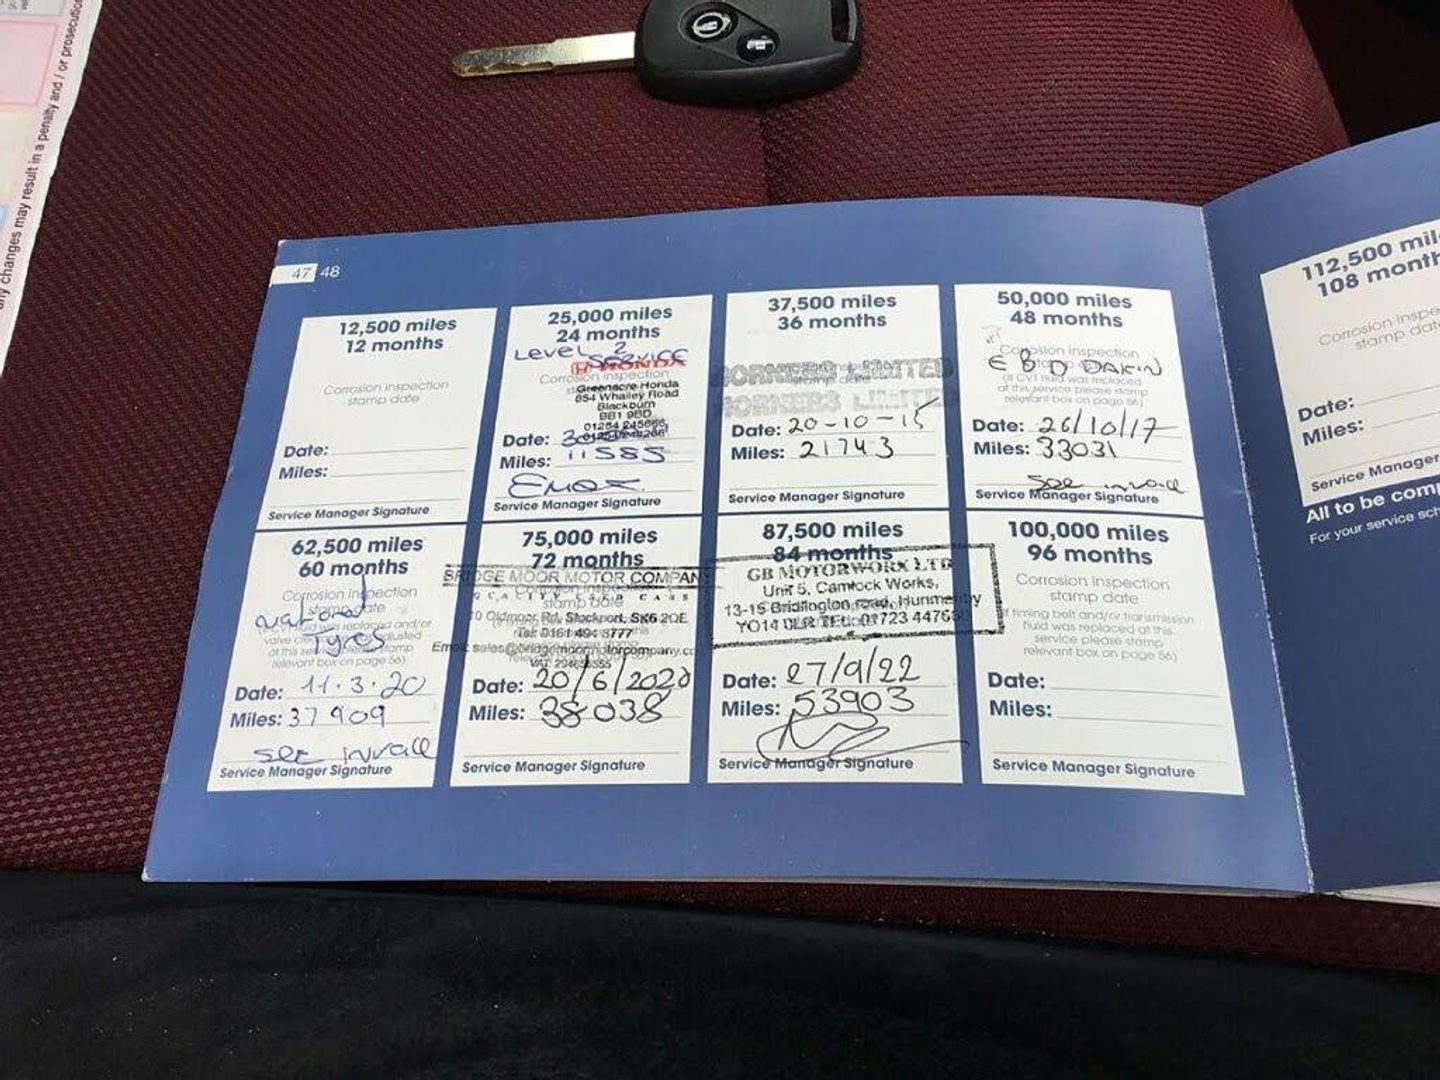 ny changes may result in a penalty and / or prosecutio
47 48
12,500 miles
12 months
Corrosion inspection
stamp date
Date:
Miles:
Service Manager Signature
25,000 miles
24 months
LEVEL 2
SERVICE
HONDA
Corrosion inspection
Greenacre Honda
854 Whalley Road
Blackburn
BB1 9BD
Date:
Miles: 11585
Service Manager Signature
37,500 miles
36 months
HORNERS LIMITED
stamp date
HORNERS LIMITED
Date: 20-10-15
Miles: 21743
Service Manager Signature
50,000 miles
48 months
Corrosion inspection
E B D DAKIN
(If CVT fluid was replaced
at this service please stamp
relevant box on page 56)
Date: 26/10/17
Miles: 33031
see invoice
Service Manager Signature
62,500 miles
60 months
Corrosion inspection
stamp date
National
Tyres
at this service please stamp
relevant box on page 56)
Date: 11.3.20
Miles: 37909
see invoice
Service Manager Signature
75,000 miles
72 months
BRIDGE MOOR MOTOR COMPANY
QUALITY USED CARS
stamp date
Oldmoor Rd, Stockport, SK6 2QE
Tel: 0161 494 8777
Email: sales@bridgemoormotorcompany.co
Date: 20/6/2020
Miles: 38038
Service Manager Signature
87,500 miles
84 months
GB MOTORWORX LTD
Unit 5, Camlock Works,
13-15 Bridlington road, Hunmanby
YO14 TEL: 01723 4476
Date: 27/9/22
Miles: 53903
Service Manager Signature
100,000 miles
96 months
Corrosion inspection
stamp date
If timing belt and/or transmission
fluid was replaced at this
service please stamp
relevant box on page 56)
Date:
Miles:
Service Manager Signature
112,500 mil
108 month
Corrosion inspe
stamp dat
Date:
Miles:
Service Manager
All to be comp
For your service sch